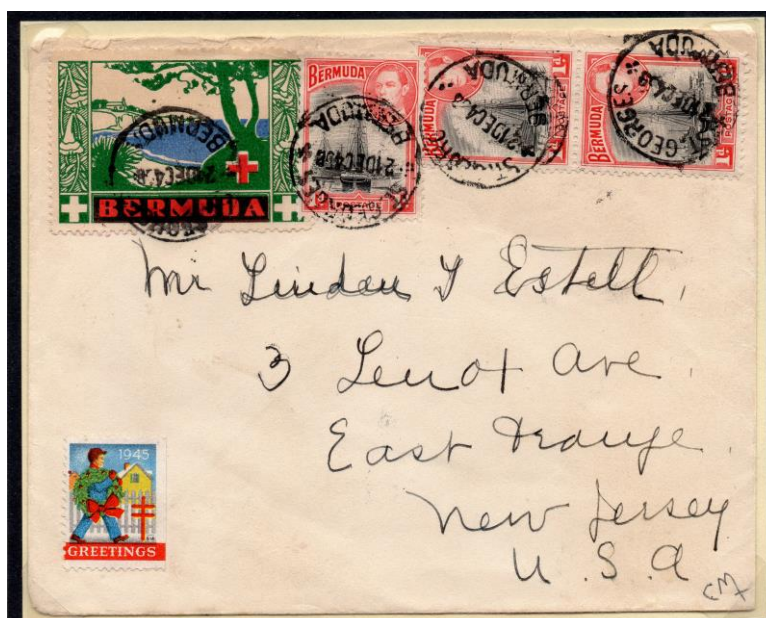 BERMUDA
BERMUDA
BERMUDA
1d
BERMUDA
POSTAGE
1d
ST. GEORGES
BERMUDA
21 DEC 45
Mr Linden Y Estell,
3 Lenox Ave.
East Orange.
New Jersey
U. S. A
CM
1945
GREETINGS